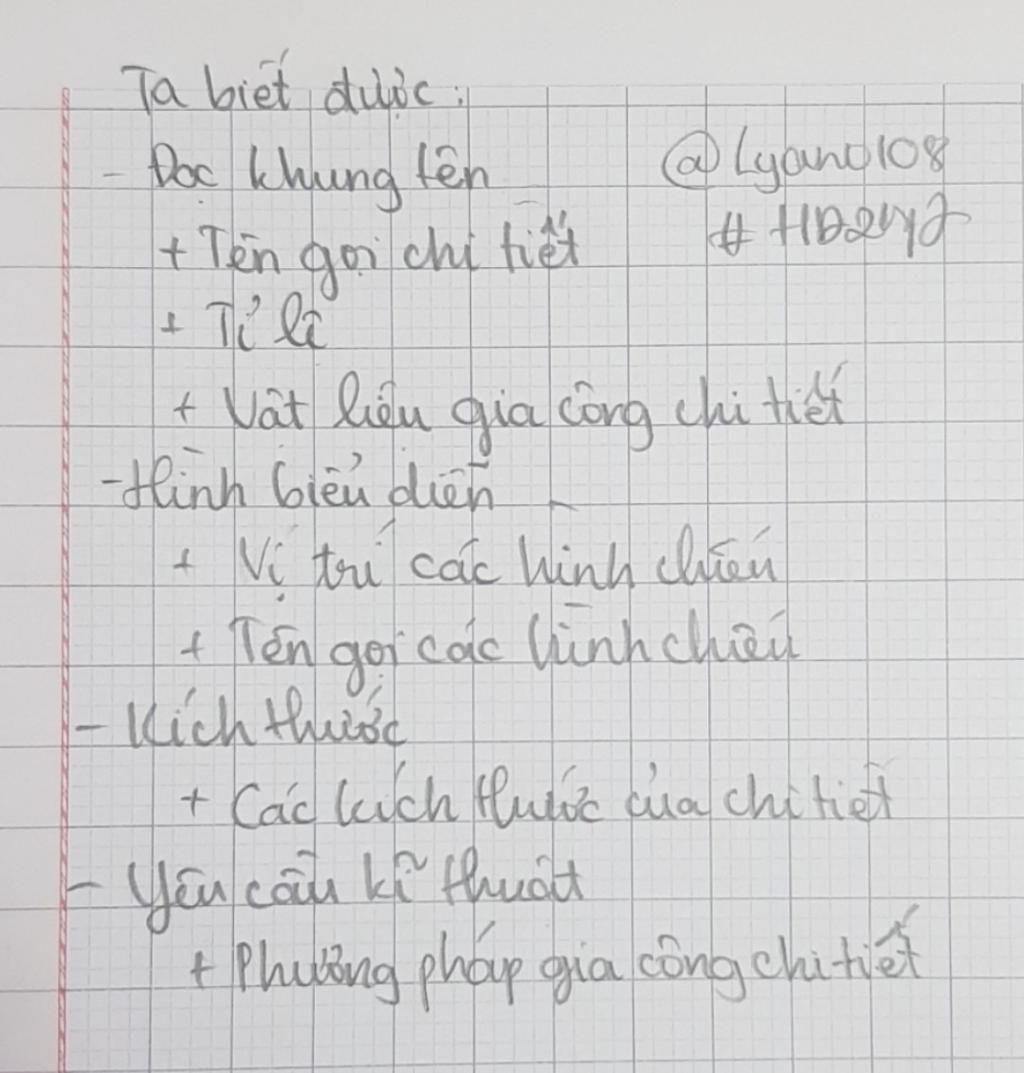 Ta biết được:
- Đọc khung tên
@Lyano108
+ Tên gọi chi tiết
+ Tỉ lệ
+ Vật liệu gia công chi tiết
- Hình biểu diễn
+ Vị trí các hình chiếu
+ Tên gọi các hình chiếu
- Kích thước
+ Các kích thước của chi tiết
- Yêu cầu kĩ thuật
+ Phương pháp gia công chi tiết